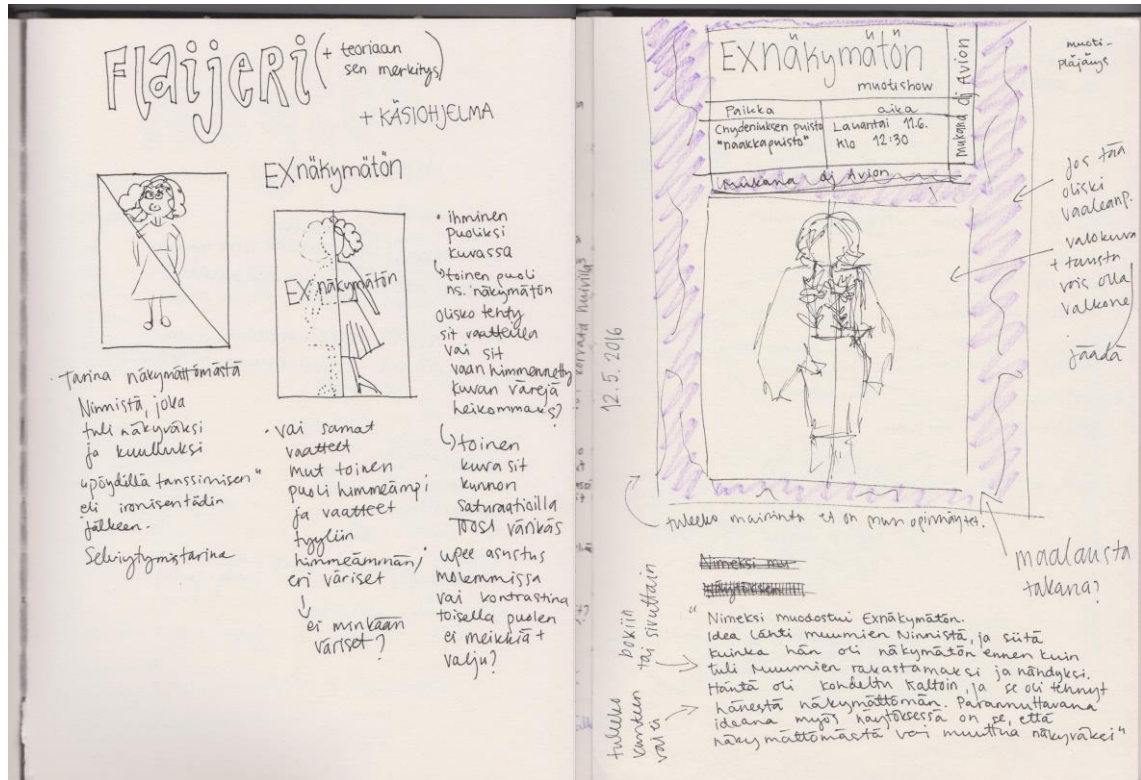 FLaijeRi (+ teoriaan
sen merkitys)
+ KÄSIOHJELMA
EXnäkymätön
EXnäkymätön
· Tarina näkymättömästä
Ninnistä, joka
tuli näkyväksi
ja kuulluksi
"pöydillä tanssimisen"
eli ironisentädin
jälkeen.
Selviytymistarina
· vai samat
vaatteet
mut toinen
puoli himmeämpi
ja vaatteet
tyyliin
himmeämmän,
eri väriset
↓
ei minkään
väriset?
· ihminen
puoliksi
kuvassa
↳ toinen puoli
ns. näkymätön
olisko tehty
sit vaatteilla
vai sit
vaan himmennetty
kuvan värejä
heikommaks?
↳ toinen
kuva sit
kunnon
saturaatioilla
TOSI värikäs
upee asustus
molemmissa
vai kontrastina
toisella puolen
ei meikkiä +
valju?
12.5.2016
EXnäkymätön
muotishow
Paikka
aika
Chydeniuksen puisto
"naakkapuisto"
Lauantai 11.6.
Klo 12:30
mukana dj Avion
mukana dj Avion
muoti-
pläjäys
Jos tän
oliski
vaaleanp.
valokuva
+ tausta
vois olla
valkone
jäädä
tuleeko maininta et on mun opinnäytet.
maalausta
takana?
Nimeksi mu
tuleeko
kanteen
vai ei
bokiin
tai sivuttain
"Nimeksi muodostui Exnäkymätön.
Idea lähti muumien Ninnistä, ja siitä
kuinka hän oli näkymätön ennen kuin
tuli Muumien rakastamaksi ja nähdyksi.
Häntä oli kohdeltu kaltoin, ja se oli tehnyt
hänestä näkymättömän. Parannuttavana
ideana myös näytöksessä on se, että
näkymättömästä voi muuttua näkyväksi"